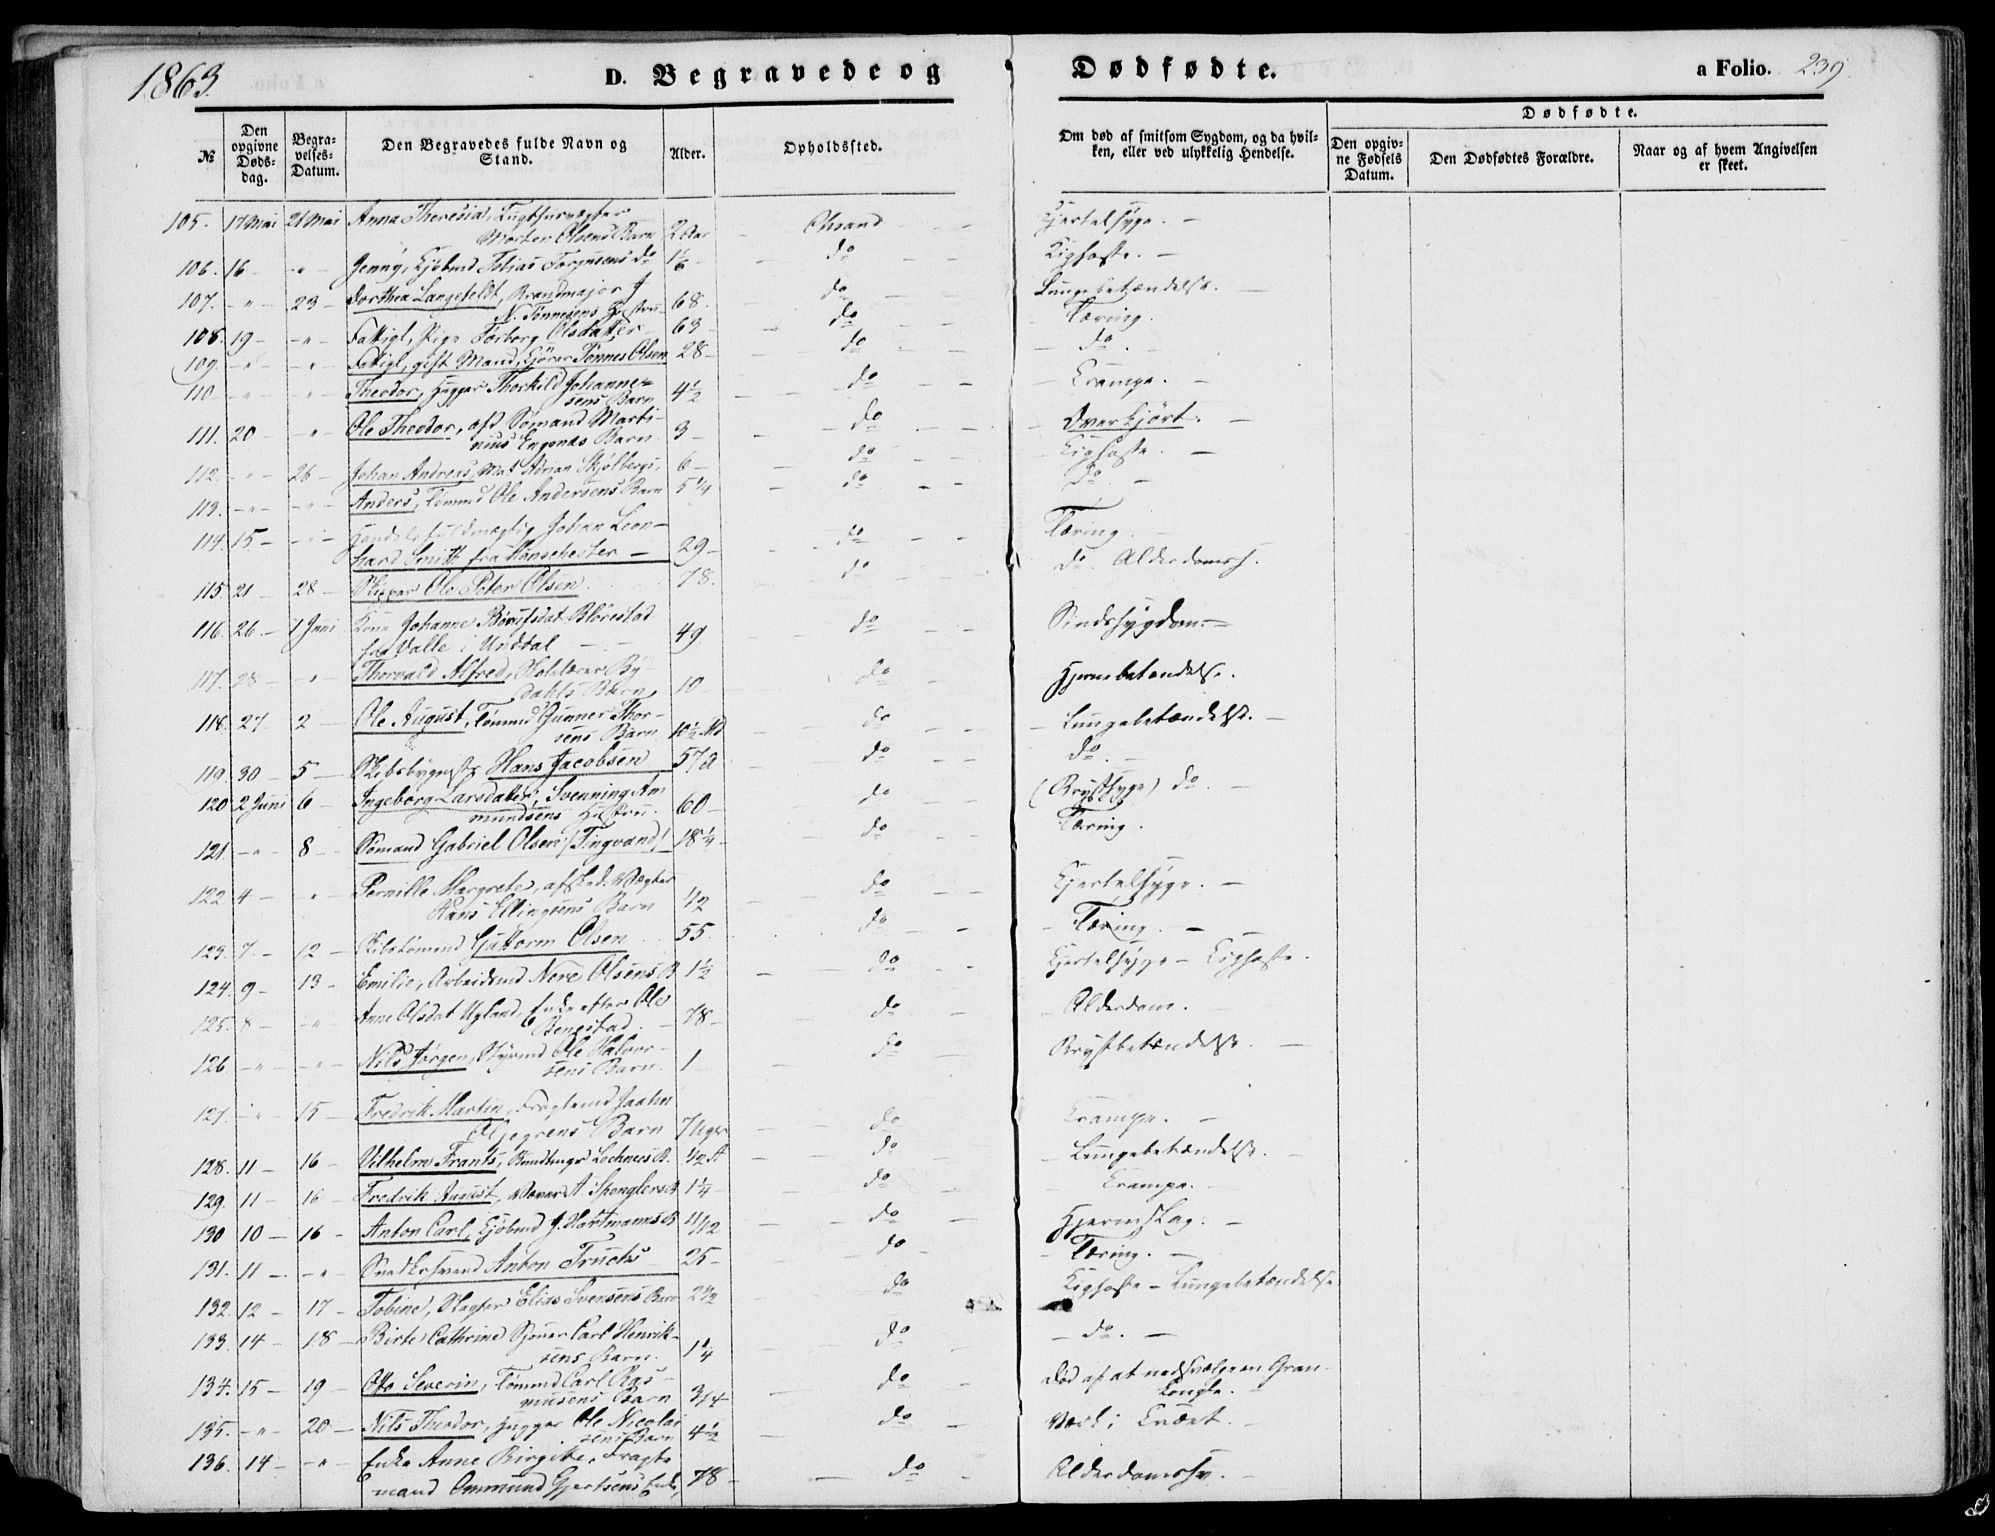 1863.
D. Begravede og Dødfødte. a Folio. 239.
№
Den opgivne Døds-dag.
Begra-velses-Datum.
Den Begravedes fulde Navn og Stand.
Alder.
Opholdssted.
Om død af smitsom Sygdom, og da hvil-ken, eller ved ulykkelig Hendelse.
Dødfødte.
Den opgiv-ne Fødsels Datum.
Den Dødfødtes Forældre.
Naar og af hvem Angivelsen er skeet.
105. 17 Mai 21 Mai Anna Theresia, Tugthusvægter
Morten Olsens Barn 2 Aar - Chsand - - Kjertelsyge. -
106. 16 - - " - Jenny, Kjøbmd Tobias Torjusens do 1 1/6 - - do - - Kighoste. -
107. - " - 23 - Dorthea Langefeldt, Brandmajor J
N. Tønnesens Hustru 68. - do - - Lungebetændelse. -
108. 19 - - " - Fattigl, Pige Torborg Olsdatter 63 - - do - - Tæring.
109. - " - - " Fattigl, gift Mand, Tønnes Olsen 28 - do - - do. -
110 - " - - " - Theodor, Hugger Thorkild Johanne-
sens Barn 4 1/2 - - do - - Krampe. -
111. 20 - " - Ole Theodor, afd Sømand Marti-
nius Barn 3 - - do - - Overkjørt. -
112. - " - 26 - Johan Andreas, Mat Adrian 6 - - do - - Kighoste. -
113. - " - - " - Anders, Tømmd Ole Andersens Barn 5 1/4 - do - - do -
114. 15 - - " - Handelsfuldmægtig Johan Leon-
hard Smitt fra Manschester - 29 - - do - - Tæring.
115. 21 - 28 - Skipper Ole Peter Olsen 78. - do - - do. Alderdomssv.
116. 26 - 1 Juni Kone Johanne
fra Valle i Unddal - 49 - do - - Sindssygdom. -
117. 28 - - " - Thorvald Alfred, By-
dahls Barn, 10 - - do - - Hjernebetændelse.
118. 27. 2 - Ole August, Tømmd Gunner Thor-
sens Barn 10 1/2 Md - do - - Lungebetændelse. -
119. 30 - 5 - Skibsbygmstr Hans Jacobsen 57 A - do - - do. -
120 2 Juni 6 - Ingeborg Larsdatter, Svenning Am
mundsens Hustru. 60 - - do - - (Brystsyge) do. -
121. - " - 8 - Sømand Gabriel Olsen /Tingvand/ 18 1/4 - - do - - Tæring.
122. 4 - - " - Pernille Margrete, afsked. Vægter
Hans Ellingsens Barn 1/2 - - do - - Kjertelsyge. -
123. 7. - 12 - Skibstømmd Guttorm Olsen 55. . do - - Tæring. -
124. 9 - 13 - Emilie, Arbeidsmd Nere Olsens B 1 1/2 - - do - - Kjertelsyge - Kighoste.
125. 8 - - " - Anne Olsdat Ugland, Enke efter Ole
Benestad. - 78 - do - - Alderdom.
126. - " - - " - Nils Jørgen, Styrmd Ole Halvor-
sens Barn. 1 - do - - Brystbetændelse. -
127. - " - 15 - Fredrik Martin, Fragtemd
Barn 7 Uger - do - Krampe. -
128. 11 - 16 - Vilhelm Frants, Lochners B. 1/2 A - do - - Lungebetændelse. -
129. 11 - 16 - Fredrik August, Væver A. Spenglers B 1 1/4 - - do - - Krampe. -
130 10 - 16 - Anton Carl, Kjøbmd J. Hartmanns B 11/12 - - do - Hjerneslag. -
131. 11 - - " - Snedkersvend Anton 25 - - do - - Tæring. -
132. 12 - 17 - Tobine, Slagter Elias Svensens Barn 2 1/2 - do - Kighoste - Lungebetændelse
133. 14 - 18 - Birte Cathrine Carl Henrik-
sens Barn. 1 1/4 - do - - do. -
134. 15 - 19 - Otto Severin, Tømmd Carl Ras-
musens Barn 3/4 - do - Død af at nedsvælge en Gran-
kongle.
135. - " - 20 - Nils Theodor, Hugger Ole Nicolai
sens Barn 4 1/2 - do - Værk i Knæet. -
136. 14 - - " - Enke Anne Birgitte, Fragte
mand Ommund Gjertsens Enke, 78 - - do - Alderdomssv. -